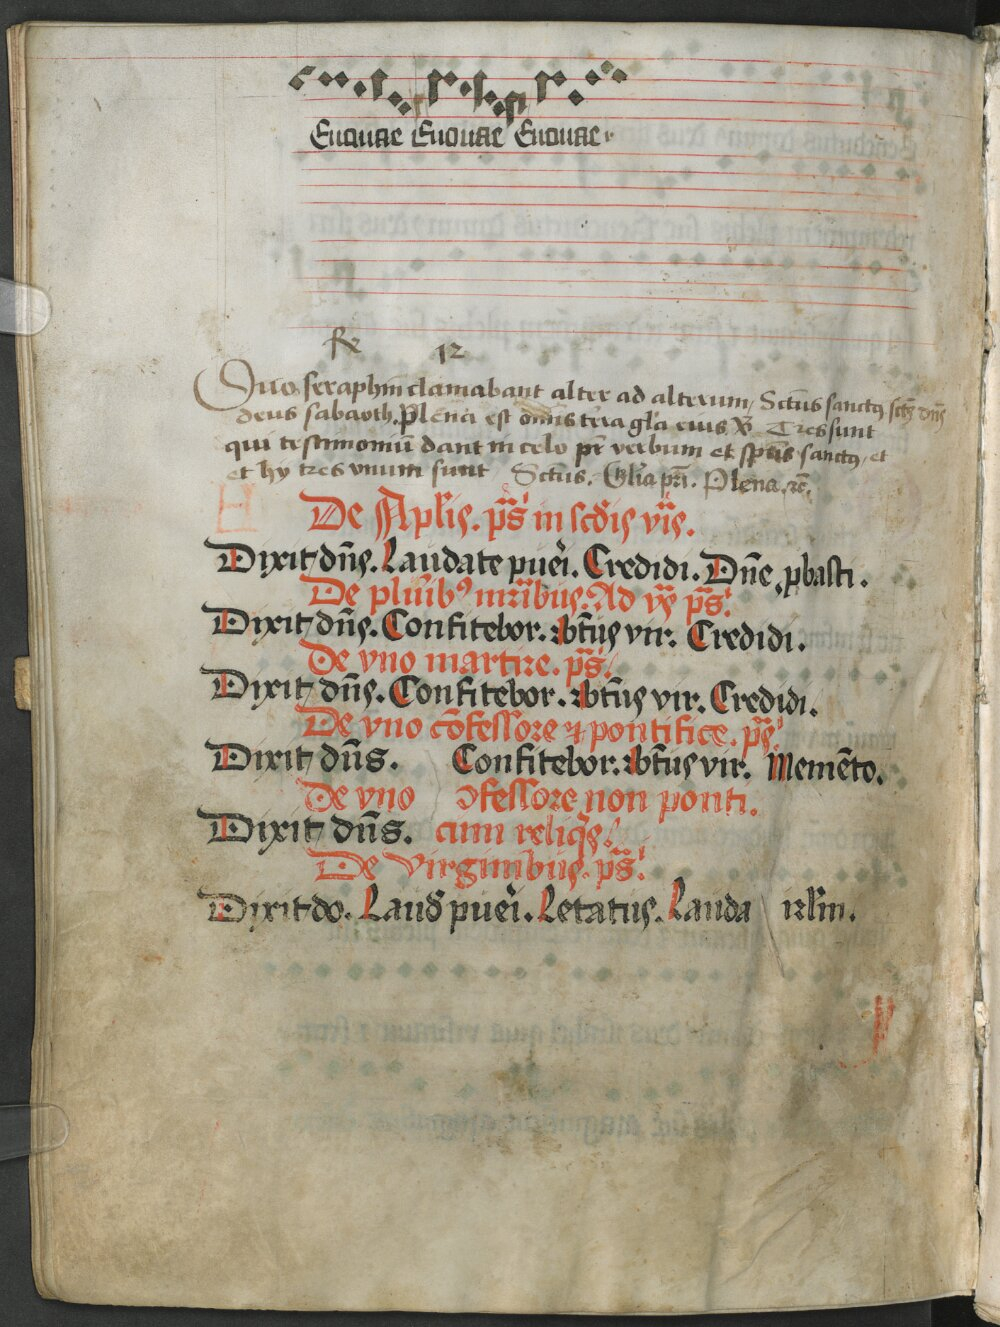 Euouae Euouae Euouae
R 12
Duo seraphin clamabant alter ad alterum, Sctūs sanctꝯ sctꝯ dn̄s
deus sabaoth. Plena est om̄is terra gl̄a eius V̄ Tres sunt
qui testimoniū dant in celo pr̄ verbum et sp̄us sanctꝯ, et
et hy tres unum sunt Sctūs. Gl̄ia pri. Plena. rē.
De Aplis. ps̄ in scd̄is vīs.
Dixit dn̄s. Laudate pueri. Credidi. Dn̄e ꝓbasti.
De plurībꝰ mr̄ibus. Ad vꝝ ps̄.
Dixit dn̄s. Confitebor. Btūs vir. Credidi.
De vno martire. ps̄.
Dixit dn̄s. Confitebor. Btūs vir. Credidi.
De vno cōfessore ⁊ pontifice. ps̄.
Dixit dn̄s. Confitebor. Btūs vir. Memēto.
De vno ꝯfessore non ponti.
Dixit dn̄s. cum reliqs̄.
De virginibus. ps̄.
Dixit do. Laud pueri. Letatus. Lauda irlm̄.